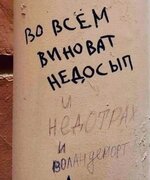 ВО ВСЁМ
ВИНОВАТ
НЕДОСЫП
И
НЕДОТРАХ
И
ВОЛАНДЕМОРТ